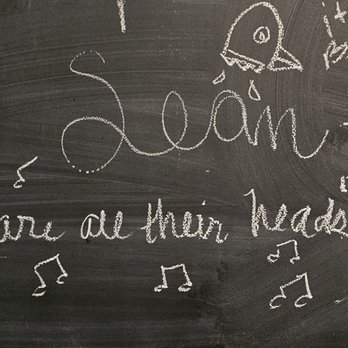 Sean
are all their heads